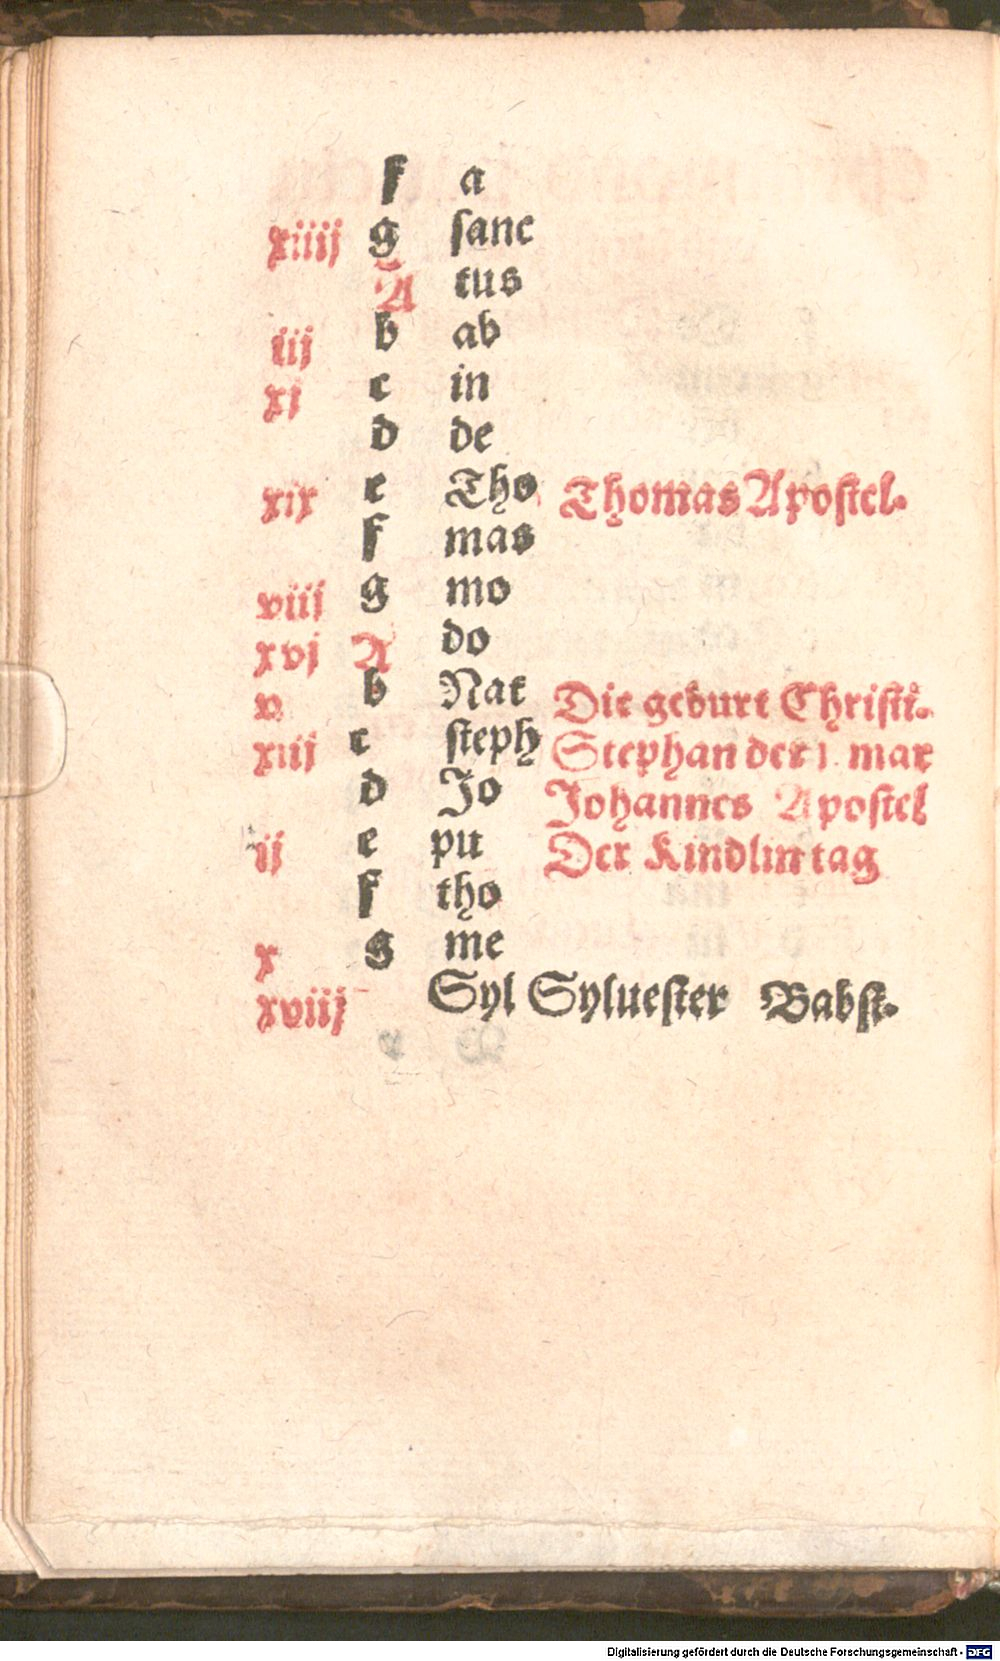 f a
xiiij g sanc
A tus
b ab
iij c in
xj d de
xix e Tho Thomas Apostel.
f mas
viij g mo
xvj A do
v b Nat Die geburt Christi.
xiij c steph Stephan der 1. mar
d Jo Johannes Apostel
ij e pu Der Kindlin tag
f tho
x g me
xviij Syl Syluester Babst.
Digitalisierung gefördert durch die Deutsche Forschungsgemeinschaft - DFG